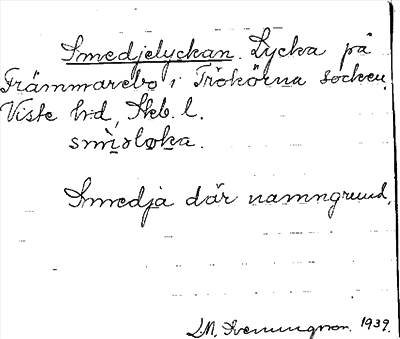 Smedjelyckan. Lycka på
Främmarebo i Trökörna socken,
Viste hd, Skb. l.
smìsloka.
Smedja där namngrund.
1939.